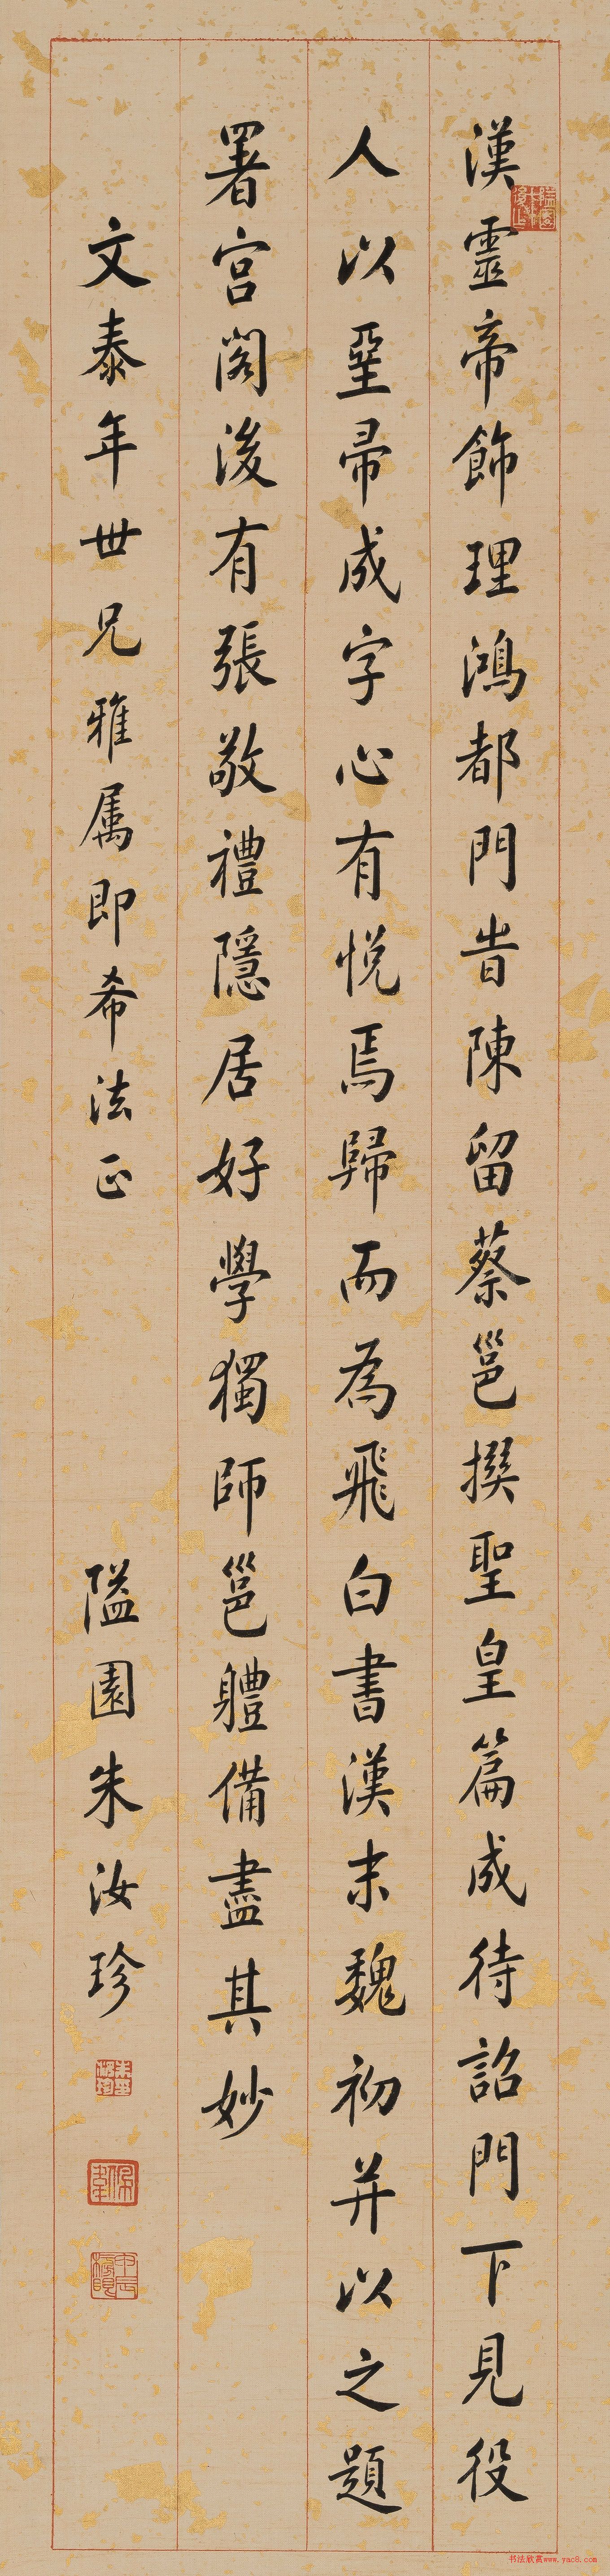 漢靈帝飾理鴻都門時陳留蔡邕撰聖皇篇成待詔門下見役
人以堊帚成字心有悅焉歸而為飛白書漢末魏初并以之題
署宮閣後有張敬禮隱居好學獨師邕體備盡其妙
文泰年世兄雅屬即希法正
隘園朱汝珍
书法欣赏www.yac8.com